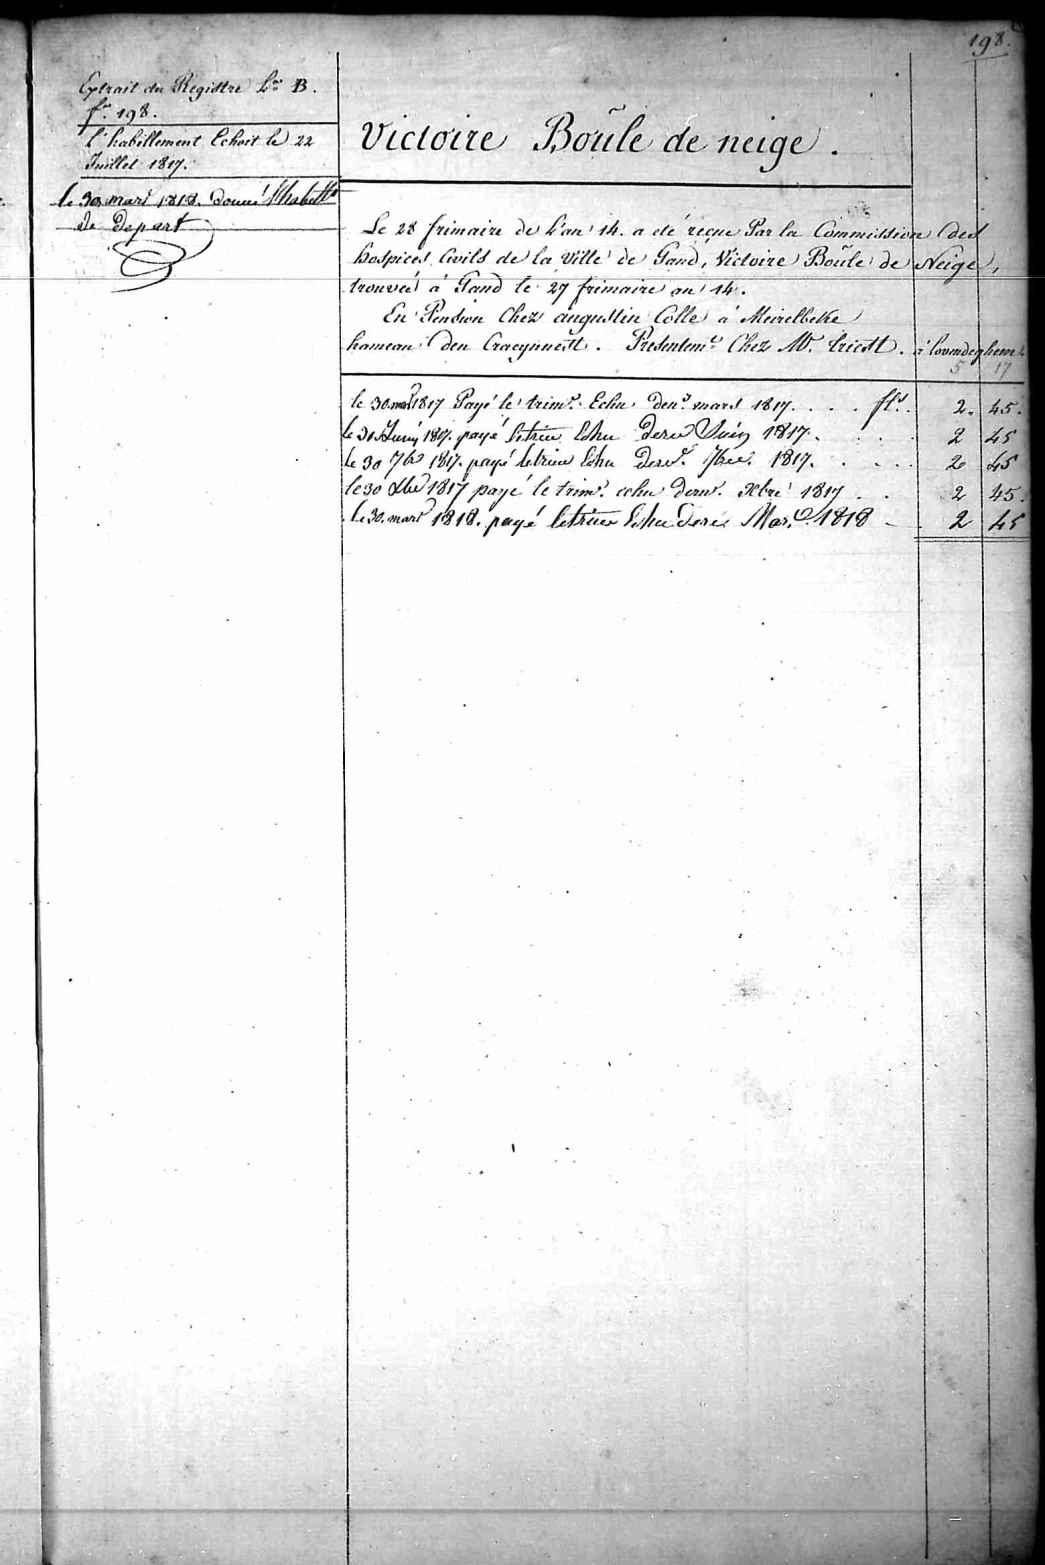 198.
Extrait du Registre L.re B.
f.o 198.
l'habillement Echoit le 22
Juillet 1817.
le 30 mars 1818. donné l'habillt
de depart
Victoire Boûle de neige.
Le 28 frimaire de l'an 14. a été reçue Par la Commission des
hospices Civils de la Ville de Gand, Victoire Boûle de Neige,
trouvée à Gand le 27 frimaire an 14.
En Pension Chez augustin Colle à Meirelbeke
hameau den Craeynnest. Presentemt. Chez Mr. tricot. à lovendeghem
5 17
le 30 mars 1817 Payé le trimre. Echu denr. mars 1817. . . . fls. 2. 45.
le 30 Juin 1817. payé le trim Echu dern Juin 1817. . . . 2 45
le 30 7bre 1817. payé le trim Echu dern. 7bre. 1817. . . . 2 45
le 30 Xbre 1817 payé le trimr. echu dernr. Xbre 1817 . . 2 45.
le 30. mars 1818. payé le trim Echu dernr Mars. 1818 2 45